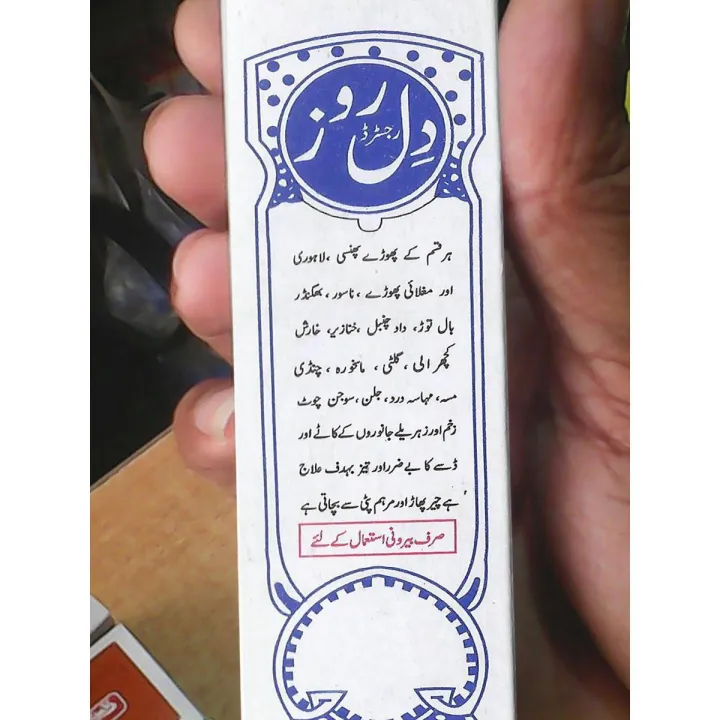 دِل روز
رجسٹرڈ
ہر قسم کے پھوڑے پھنسی ، لاہوری
اور مغلائی پھوڑے ، ناسور ، بھگندر
بال توڑ، داد چنبل ، خنازیر، خارش
کچھرالی ، گلٹی ، ماخورہ ، چنڈی
مسہ، مہاسہ درد، جلن، سوجن چوٹ
زخم اور زہریلے جانوروں کے کاٹے اور
ڈسے کا بے ضرر اور تیز بہدف علاج
ہے چیر پھاڑ اور مرہم پٹی سے بچاتی ہے
صرف بیرونی استعمال کے لئے